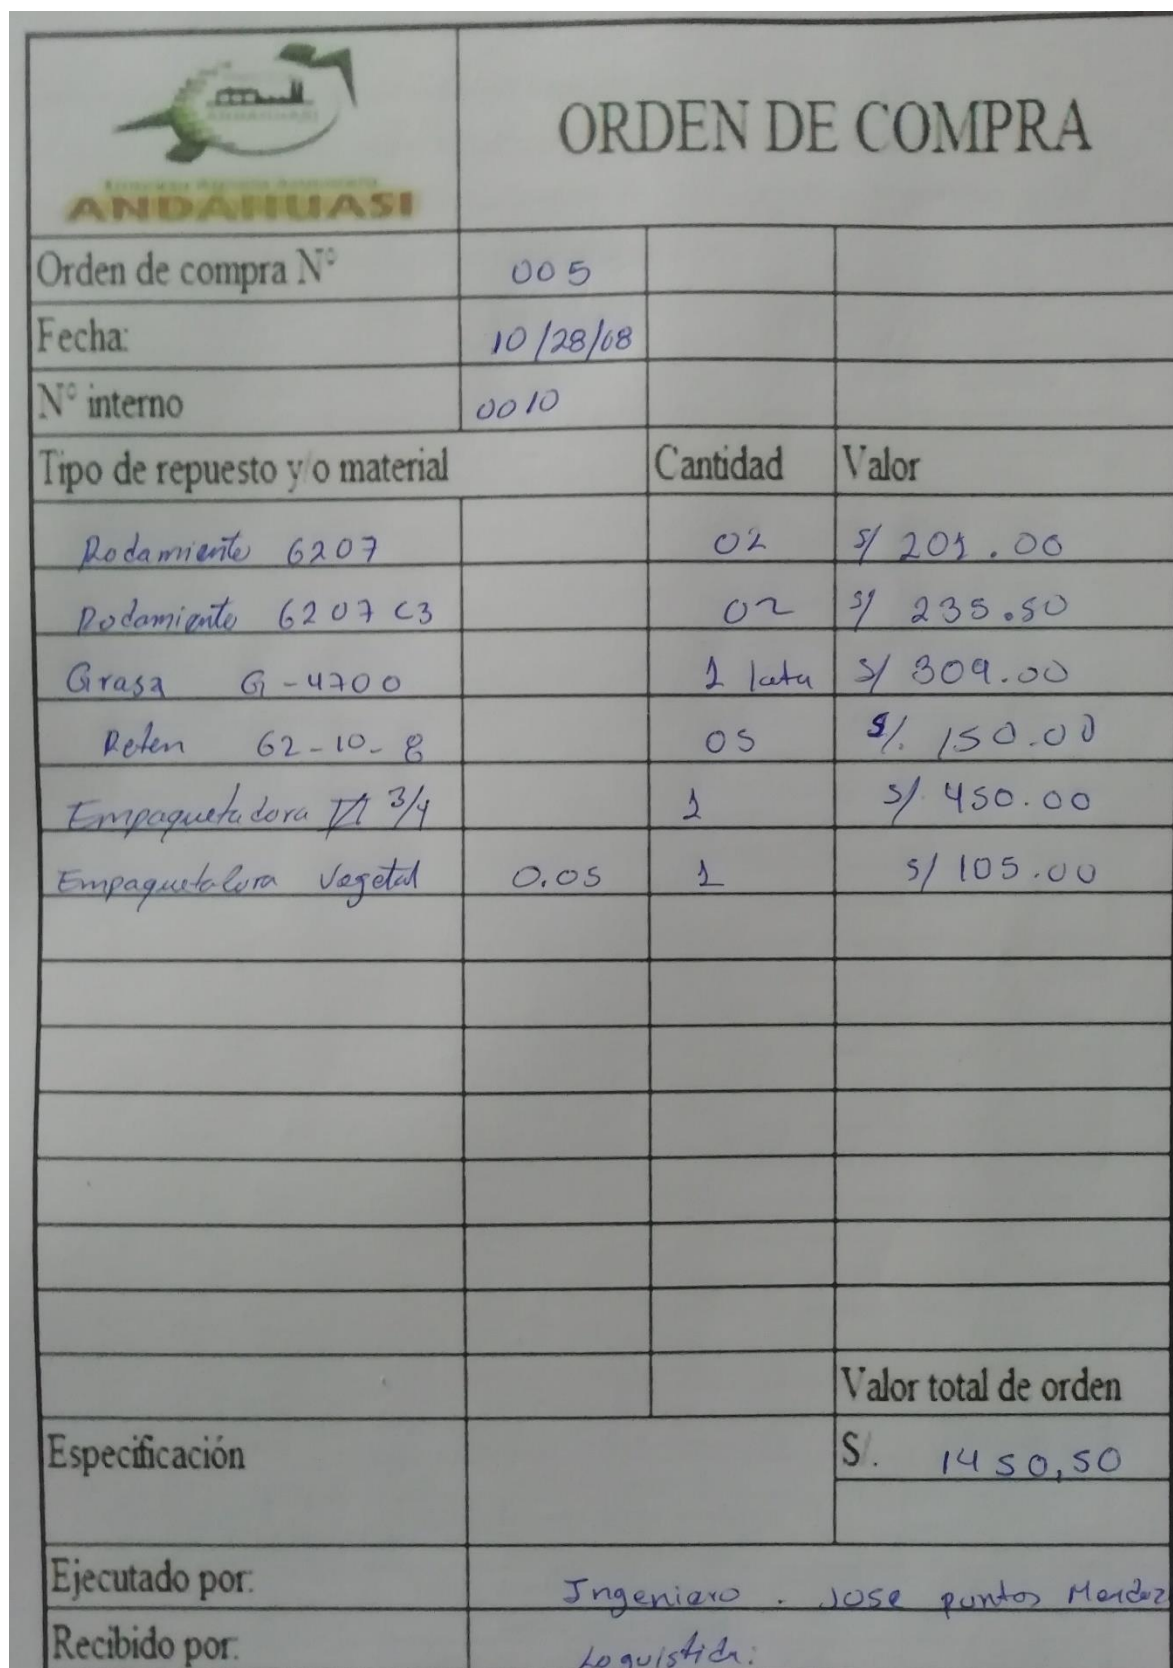 ANDAHUASI
ORDEN DE COMPRA
Orden de compra N° 005
Fecha: 10/28/68
N° interno 0010
Tipo de repuesto y/o material Cantidad Valor
Rodamiento 6207 02 S/ 201.00
Rodamiento 6207 C3 02 S/ 235.50
Grasa G-4700 1 lata S/ 309.00
Reten 62-10-8 05 S/. 150.00
Empaquetadora 3/4 1 S/. 450.00
Empaquetadora Vegetal 0.05 1 S/ 105.00
Valor total de orden
Especificación S/. 1450,50
Ejecutado por: Ingeniero . Jose puntos Mendez
Recibido por: Loguistica: